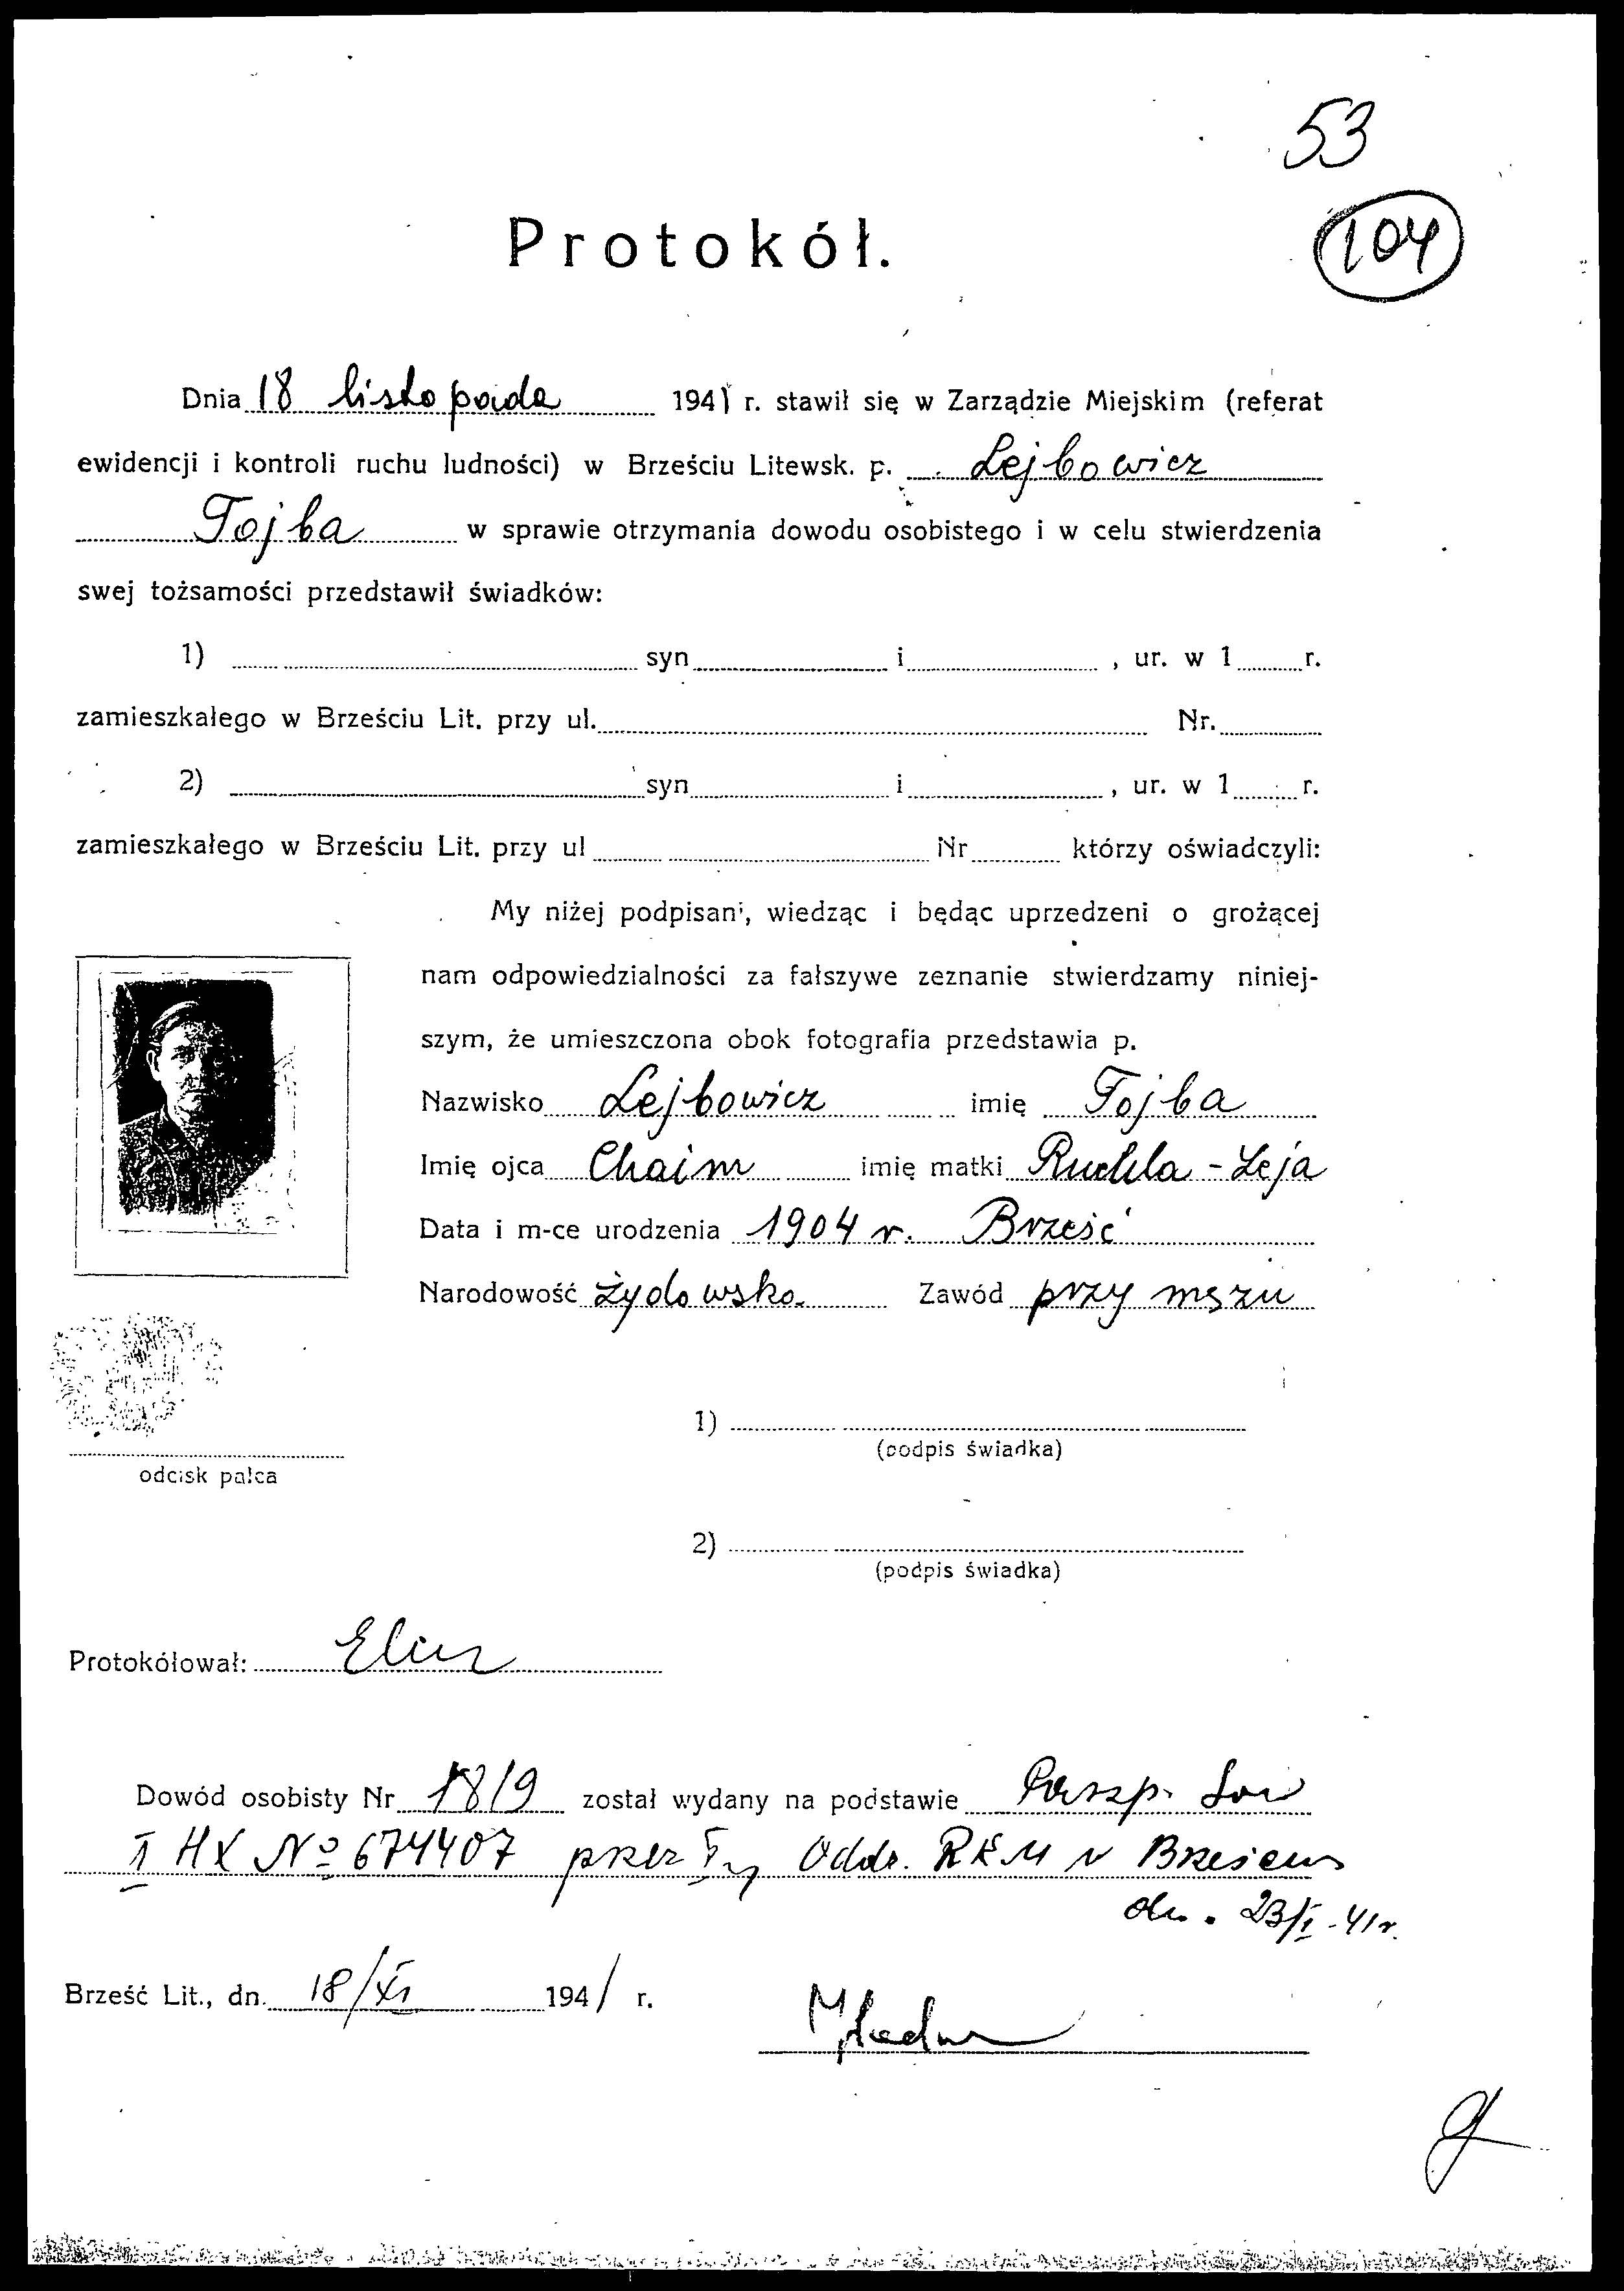 53
104
Protokół.
Dnia 18 listopada 1941 r. stawił się w Zarządzie Miejskim (referat
ewidencji i kontroli ruchu ludności) w Brześciu Litewsk. p. Lejbowicz
Fojba w sprawie otrzymania dowodu osobistego i w celu stwierdzenia
swej tożsamości przedstawił świadków:
1) syn i , ur. w 1 r.
zamieszkałego w Brześciu Lit. przy ul. Nr.
2) syn i , ur. w 1 r.
zamieszkałego w Brześciu Lit. przy ul Nr którzy oświadczyli:
My niżej podpisani, wiedząc i będąc uprzedzeni o grożącej
nam odpowiedzialności za fałszywe zeznanie stwierdzamy niniej-
szym, że umieszczona obok fotografia przedstawia p.
Nazwisko Lejbowicz imię Fojba
Imię ojca Chaim imię matki Ruchla - Leja
Data i m-ce urodzenia 1904 r. Brześć
Narodowość żydowska Zawód przy mężu
1)
(podpis świadka)
odcisk palca
2)
(podpis świadka)
Protokółował:
Dowód osobisty Nr 1819 został wydany na podstawie Paszp. Sow
I HX № 674407 przez Oddz. RKM w Brześciu
dn. 23/I - 41 r.
Brześć Lit., dn. 18/XI 1941 r.